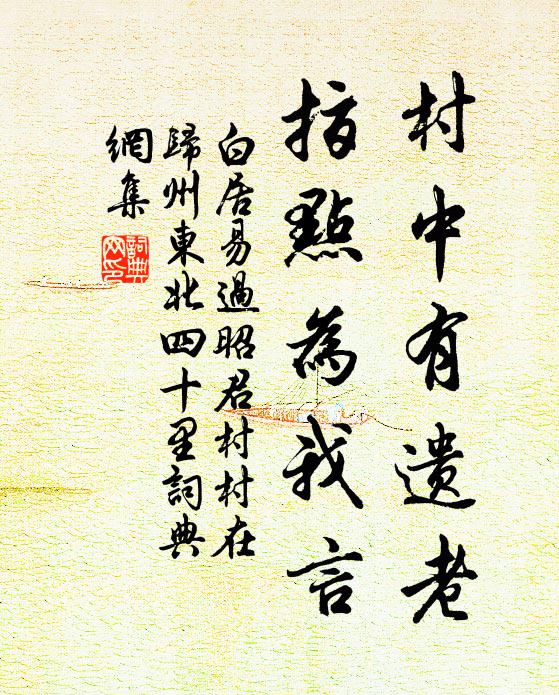 村中有遺老
指點為我言
白居易過昭君村村在
歸州東北四十里詞典
網集
詞典
网印